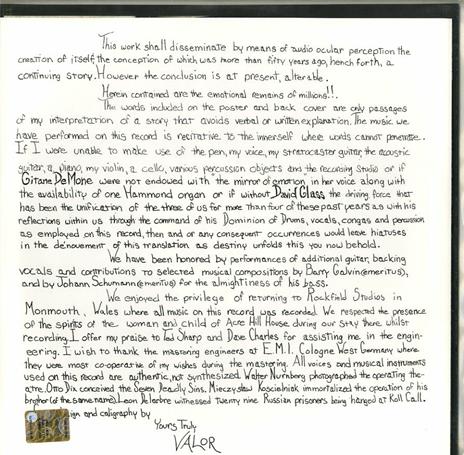 This work shall disseminate by means of audio ocular perception the
creation of itself, the conception of which was more than fifty years ago, hench forth, a
continuing story. However the conclusion is at present, alterable.
Herein contained are the emotional remains of millions!!.
The words included on the poster and back cover are only passages
of my interpretation of a story that avoids verbal or written explanation. The music we
have performed on this record is recitative to the innerself where words cannot penetrate.
If I were unable to make use of the pen, my voice, my stratocaster guitar, the acoustic
guitar, a piano, my violin, a cello, various percussion objects and the recording studio or if
Gitane DeMone were not endowed with the mirror of emotion in her voice along with
the availability of one Hammond organ or if without David Glass the driving force that
has been the unification of the three of us for more than four of these past years as with his
reflections within us through the command of his Dominion of Drums, vocals, congas and percussion
as employed on this record, then and or any consequent occurrences would leave hiatuses
in the dénouement of this translation as destiny unfolds this you now behold.
We have been honored by performances of additional guitar, backing
vocals and contributions to selected musical compositions by Barry Galvin (emeritus),
and by Johann Schumann (emeritus) for the almightiness of his bass.
We enjoyed the privilege of returning to Rockfield Studios in
Monmouth, Wales where all music on this record was recorded. We respected the presence
of the spirits of the woman and child of Acre Hill House during our stay there whilst
recording. I offer my praise to Ted Sharp and Dave Charles for assisting me in the engin-
eering. I wish to thank the mastering engineers at E.M.I. Cologne West Germany where
they were most co-operative of my wishes during the mastering. All voices and musical instruments
used on this record are authentic, not synthesized. Walter Nürnberg photographed the operating the-
atre. Otto Dix conceived the Seven Deadly Sins. Mieczyslaw Koscielniak immortalized the operation of his
brother (of the same name). Leon Delarbre witnessed twenty nine Russian prisoners being hanged at Roll Call.
sign and caligraphy by
Yours Truly
VALOR